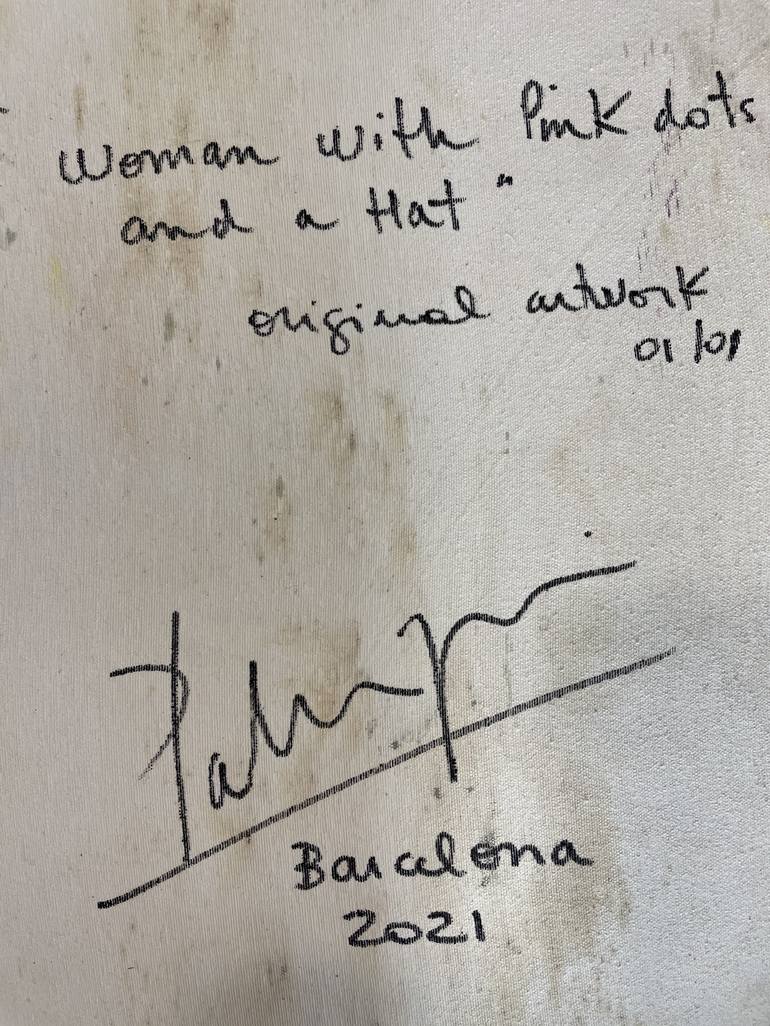 Woman with Pink dots
and a Hat"
original artwork
01/01
Barcelona
2021